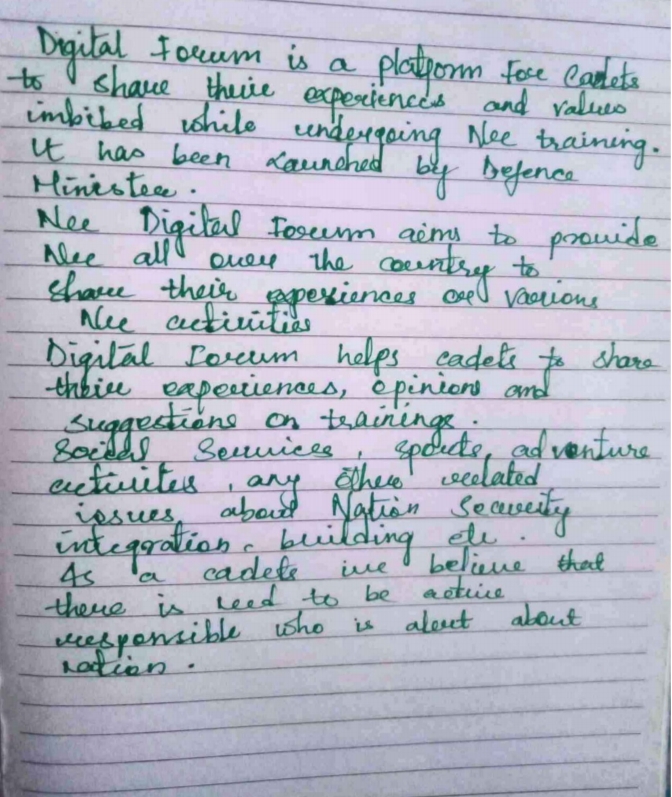 Digital Forum is a platform for Cadets
to share their experiences and values
imbibed while undergoing Ncc training.
It has been Launched by Defence
Minister.
Ncc Digital Forum aims to provide
Ncc all over the country to
share their experiences on various
Ncc activities
Digital Forum helps cadets to share
their experiences, opinions and
suggestions on trainings.
Social Services, sports, adventure
activites, any other related
issues about Nation Security
integration, building etc.
As a cadets we believe that
there is need to be active
responsible who is alert about
nation.